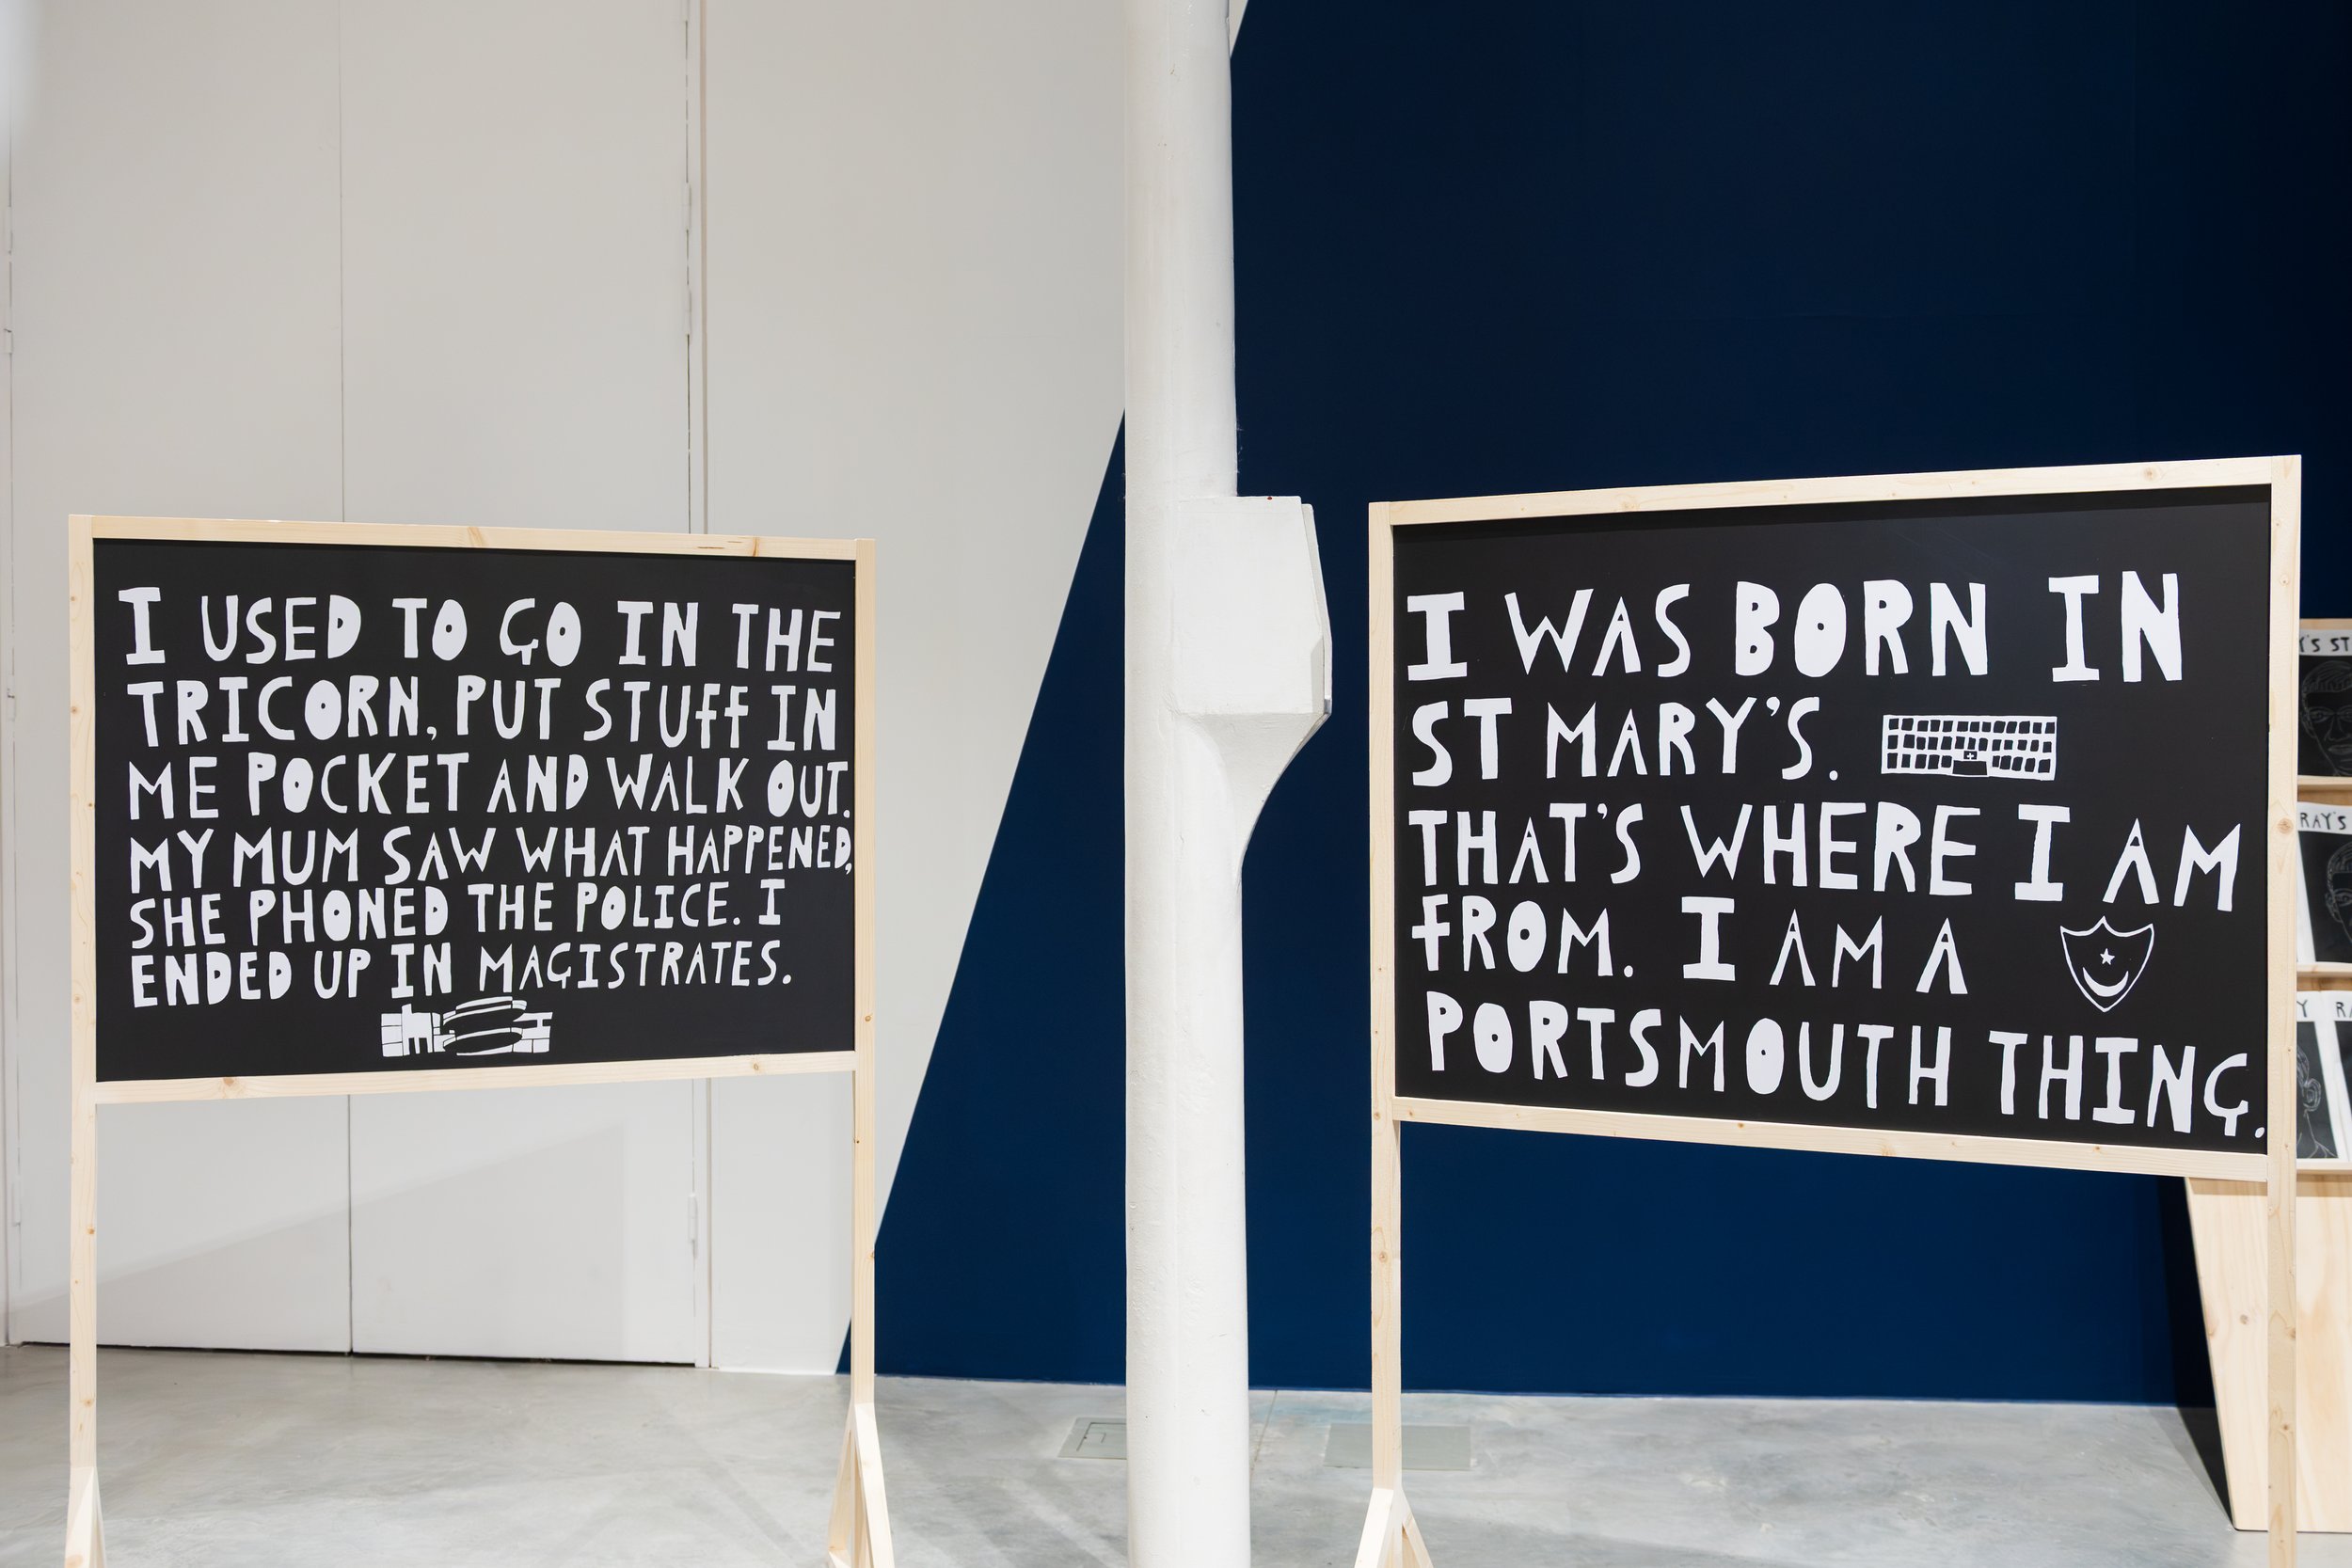 I USED TO GO IN THE
TRICORN, PUT STUFF IN
ME POCKET AND WALK OUT.
MY MUM SAW WHAT HAPPENED,
SHE PHONED THE POLICE. I
ENDED UP IN MAGISTRATES.
I WAS BORN IN
ST MARY'S.
THAT'S WHERE I AM
FROM. I AM A
PORTSMOUTH THING.
RAY'S